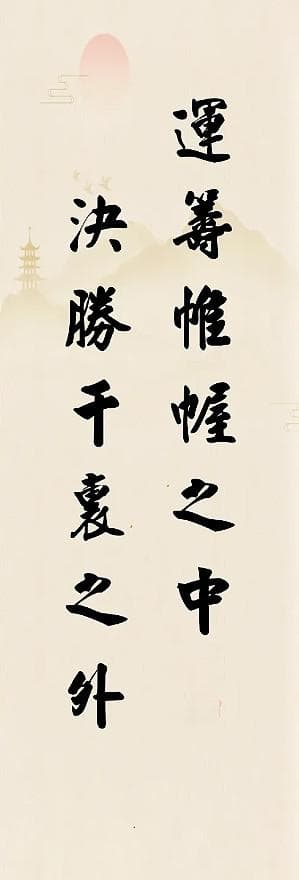 運籌帷幄之中
決勝千裏之外